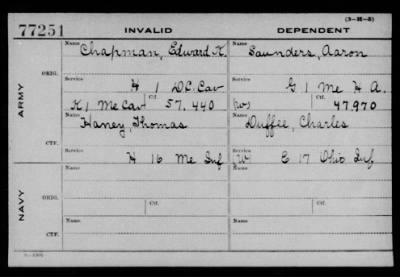 (3-H-5)
77251 INVALID DEPENDENT
ARMY
ORIG.
Name Chapman, Edward K. Name Saunders, Aaron
Service H 1 D.C. Cav Service G 1 Me H A.
K 1 Me Cav Ctf. 57,440 (W) Ctf. 47,970
CTF.
Name Haney, Thomas Name Duffee, Charles
H 16 Me Inf (W) E 17 Ohio Inf
NAVY
ORIG.
Name Name
Service Ctf. Service Ctf.
CTF.
Name Name